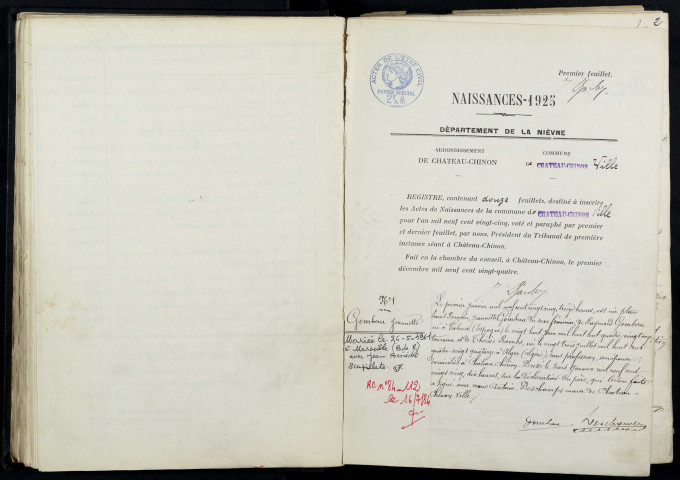 2
Premier feuillet.
ACTES DE L'ÉTAT CIVIL
PAPIER SPÉCIAL
NAISSANCES-1925
DÉPARTEMENT DE LA NIÈVRE
ARRONDISSEMENT
DE CHATEAU-CHINON
COMMUNE
DE CHATEAU-CHINON Ville
REGISTRE, contenant douze feuillets, destiné à inscrire
les Actes de Naissances de la commune de CHATEAU-CHINON Ville
pour l'an mil neuf cent vingt-cinq, coté et paraphé par premier
et dernier feuillet, par nous, Président du Tribunal de première
instance séant à Château-Chinon.
Fait en la chambre du conseil, à Château-Chinon, le premier
décembre mil neuf cent vingt-quatre.
N°1
Gombau Jeannette
Mariée le 26-5-1961
à Marseille (B. du R)
avec Jean
RC n°84-112
le 16/7/84
Le premier janvier mil neuf cent vingt cinq, treize heures, est née place
Saint Romain, Jeannette Gombau du sexe féminin, de Raymond Gombau
né à (Espagne) le vingt huit juin mil huit cent quatre vingt
et de Thérèse née le vingt trois juillet mil huit cent
quatre-vingt quatorze à Alger (Algérie) sans profession, son épouse
domiciliés à Château-Chinon. Dressé le trois janvier mil neuf cent
vingt cinq, dix heures, sur la déclaration du père, qui lecture faite
a signé avec nous Deschamps maire de Château-
Chinon Ville.
Gombau Deschamps